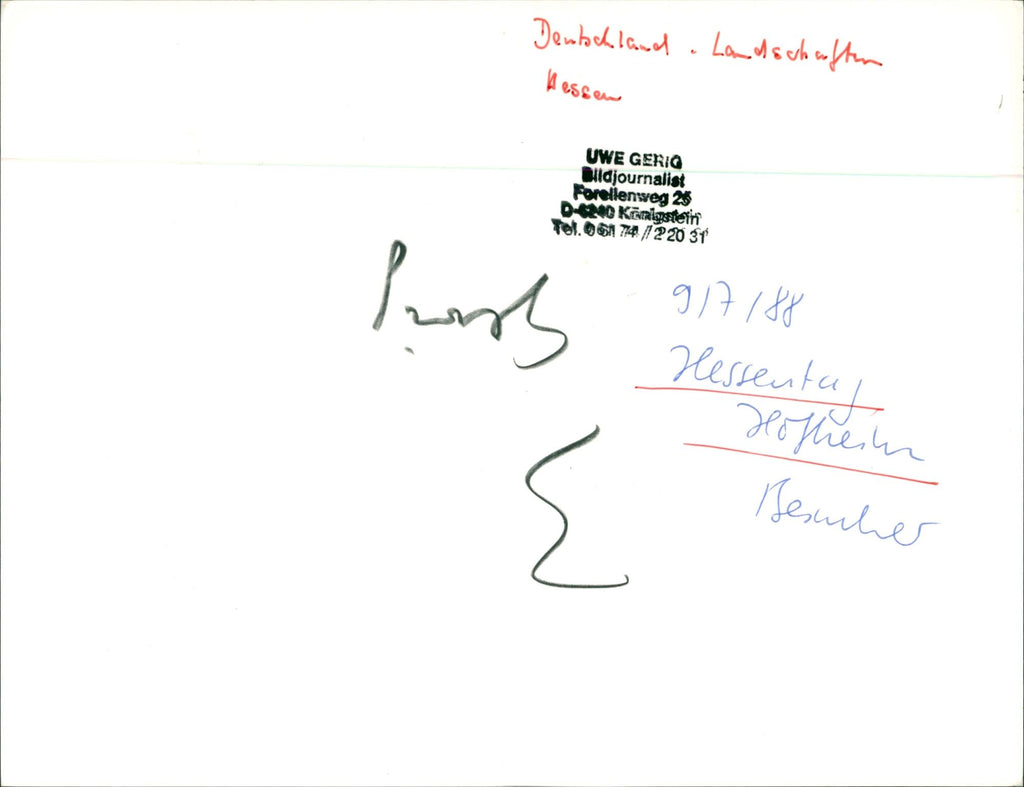 Deutschland - Landschaften
Hessen
UWE GERIG
Bildjournalist
Forellenweg 25
D-6240 Königstein
Tel. 0 61 74 / 2 20 31
9/7/88
Hessentag
Hofheim
Besucher